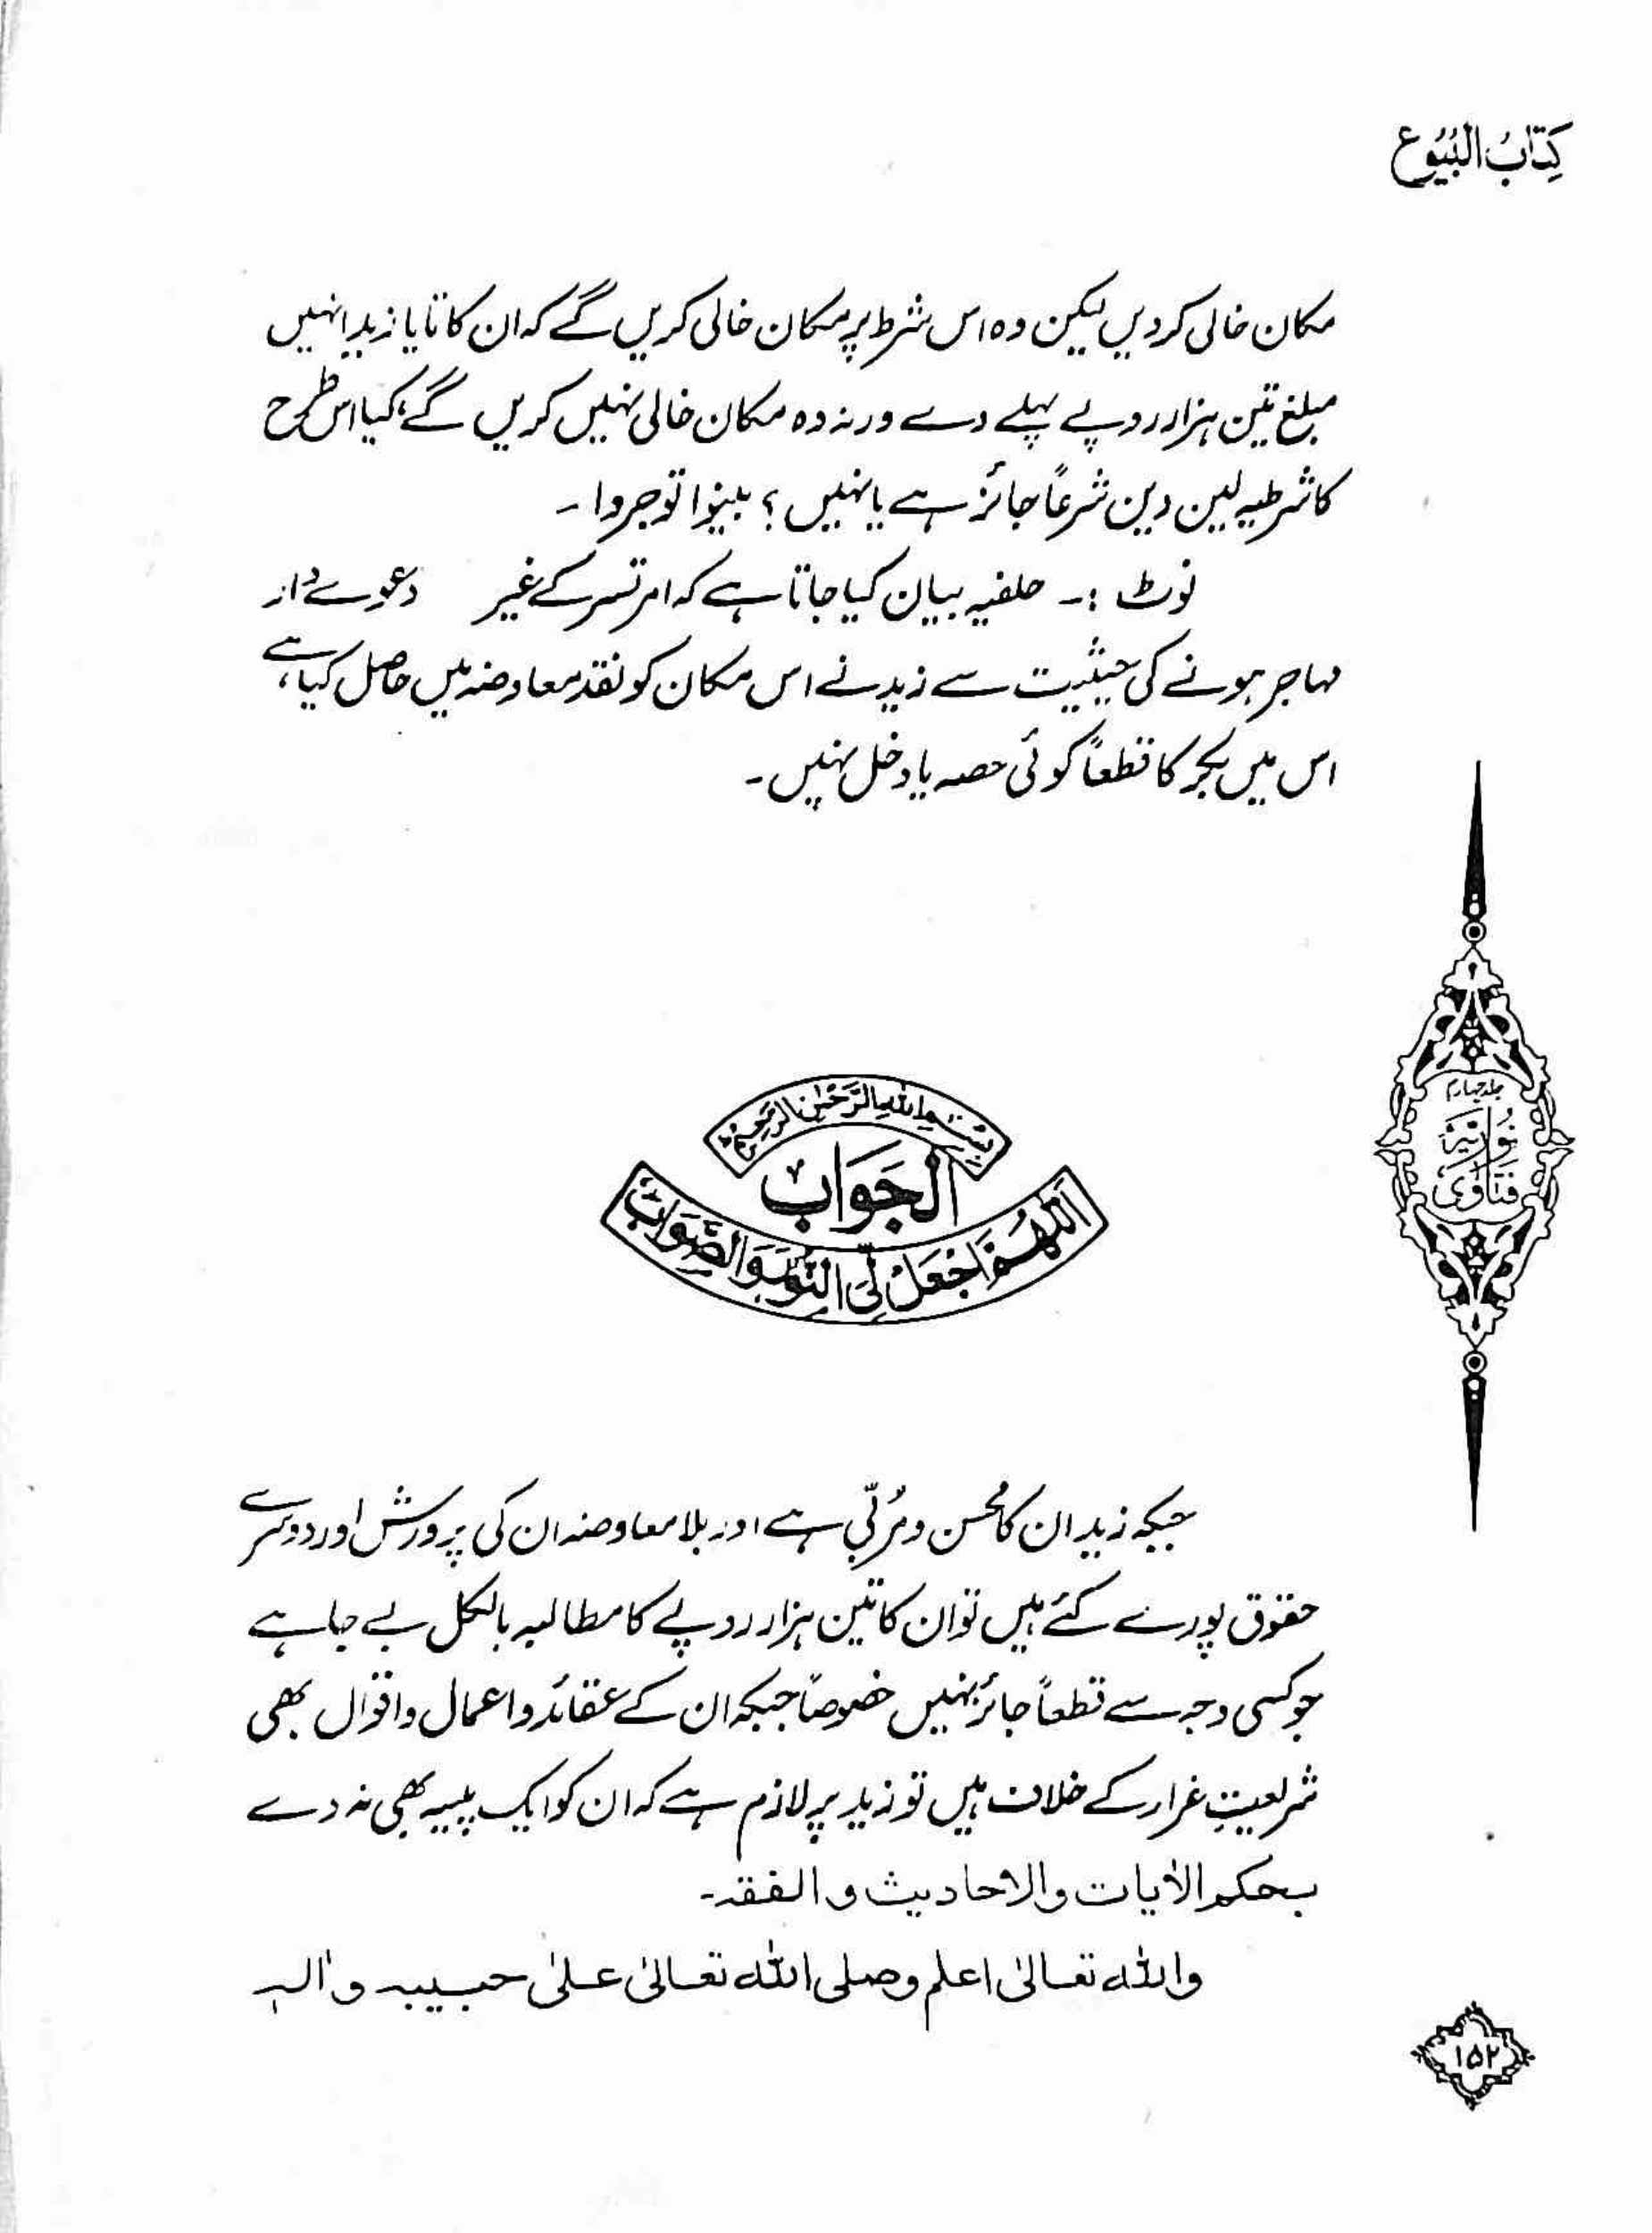 كِتَابُ الْبُيُوع
مکان خالی کردیں لیکن وہ اس شرط پر مکان خالی کریں گے کہ ان کا تایا زید انہیں
مبلغ تین ہزار روپے پہلے دے ورنہ وہ مکان خالی نہیں کریں گے، کیا اس طرح
کا شرطیہ لین دین شرعاً جائز ہے یا نہیں ؟ بینوا توجروا ۔
نوٹ :۔ حلفیہ بیان کیا جاتا ہے کہ امرتسر کے غیر دعوے دار
مہاجر ہونے کی حیثیت سے زید نے اس مکان کو نقد معاوضہ میں حاصل کیا ہے،
اس میں بکر کا قطعاً کوئی حصہ یا دخل نہیں ۔
جلد چہارم
نُورِیَّہ
فتاوی
بِسْمِ اللهِ الرَّحْمٰنِ الرَّحِيْمِ
اَلْجَوَابُ
اَللّٰهُمَّ اجْعَلْ لِّیَ النُّوْرَ وَالصَّوَابَ
جبکہ زید ان کا محسن و مُربّی ہے اور بلا معاوضہ ان کی پرورش اور دوسرے
حقوق پورے کئے ہیں تو ان کا تین ہزار روپے کا مطالبہ بالکل بے جا ہے
جو کسی وجہ سے قطعاً جائز نہیں خصوصاً جبکہ ان کے عقائد و اعمال و اقوال بھی
شریعتِ غرار کے خلاف ہیں تو زید پر لازم ہے کہ ان کو ایک پیسہ بھی نہ دے
بحکم الاٰیات والاحادیث والفقہ۔
واللہ تعالیٰ اعلم وصلی اللہ تعالیٰ علیٰ حبیبہ واٰلہٖ
۱۵۲